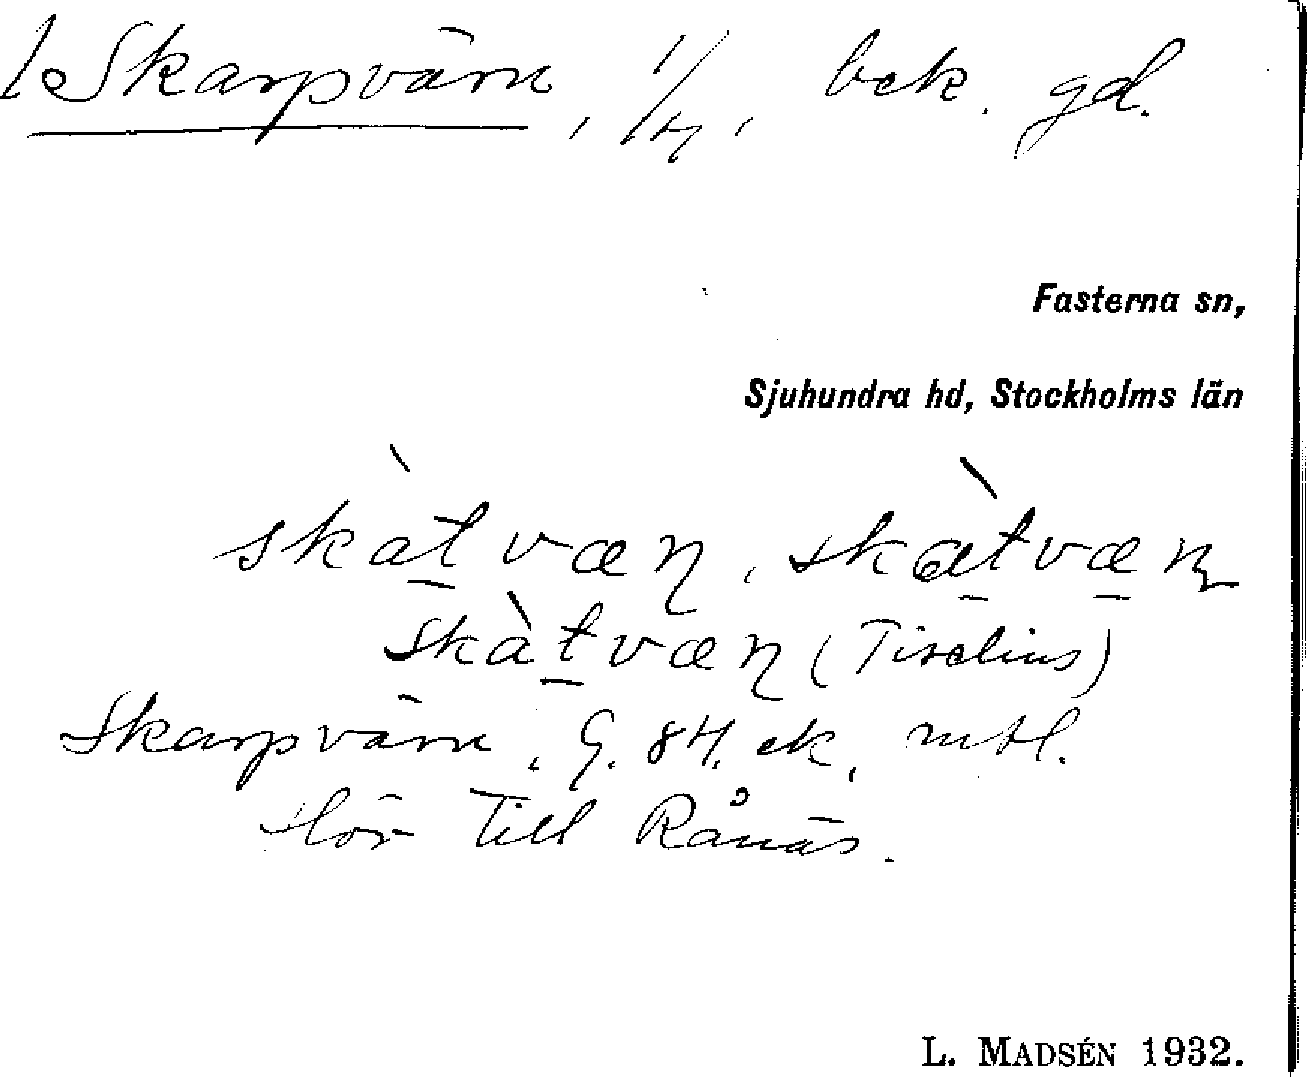 1 Skarpvärn, 1/4, bek. gd.
Fasterna sn,
Sjuhundra hd, Stockholms län
skàt̠væn̨, skæ̀t̠væ̠n̨
skàt̠væn̨ (Tiselius)
Skarpvärn, G. 84. ek, mtl.
Hör till Rånäs.
L. MADSÉN 1932.